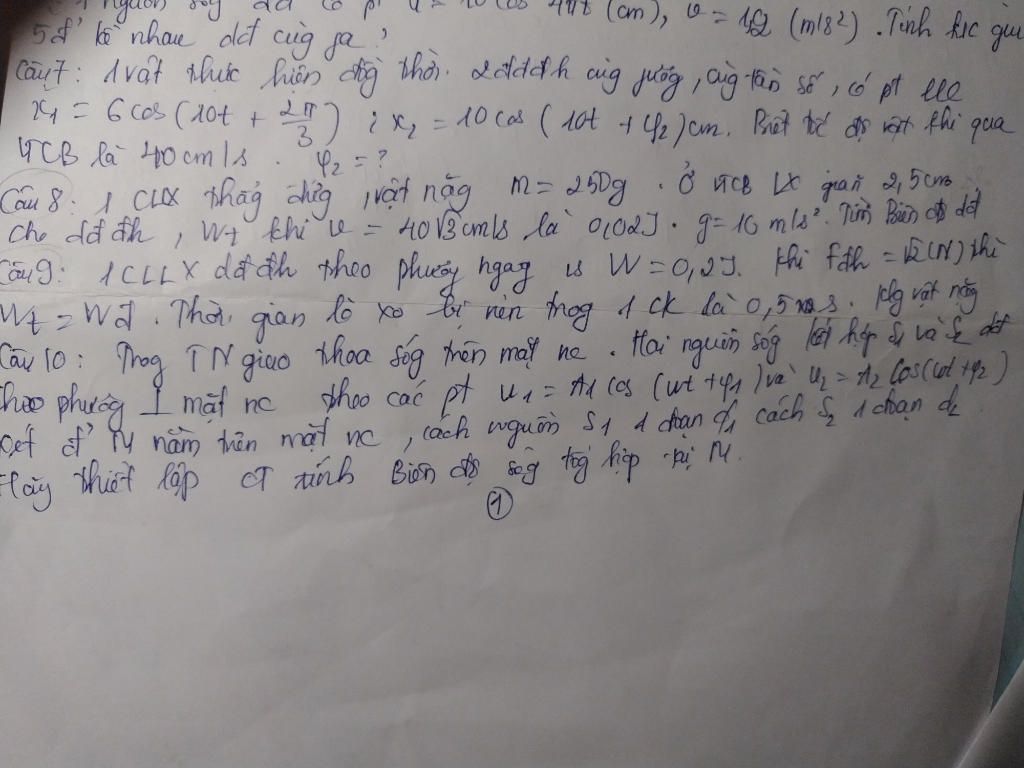 nguồn sóg dđ có pt u = 10 cos 4πt (cm), v = 12 (m/s²). Tính k/c giữa
5 đ' kề nhau dđ cùg pa?
Câu 7: 1 vật thực hiện đồg thời 2 dđđh cùg fướg, cùg tần số, có pt
x₁ = 6 cos (10t + 2π/3); x₂ = 10 cos (10t + φ₂) cm. Biết tốc độ vật khi qua
VTCB là 40 cm/s. φ₂ = ?
Câu 8: 1 CLLX thẳg đứg, vật nặg m = 250g. Ở VTCB LX giãn 2,5cm
cho dđ đh, Wt khi v = 40√3 cm/s là 0,02J. g = 10 m/s². Tìm Biên độ dđ
Câu 9: 1 CLLX dđ đh theo phươg ngag W = 0,2J. Khi Fđh = √2 (N) thì
Wt = Wđ. Thời gian lò xo bị nén trog 1 ck là 0,5 s. klg vật nặg
Câu 10: Trog TN giao thoa sóg trên mặt nc. Hai nguồn sóg kết hợp S₁ và S₂ dđ
theo phươg ⊥ mặt nc theo các pt u₁ = A₁ cos (ωt + φ₁) và u₂ = A₂ cos (ωt + φ₂)
xét đ' M nằm trên mặt nc, cách nguồn S₁ 1 đoạn d₁ cách S₂ 1 đoạn d₂
Hãy thiết lập CT tính Biên độ sóg tổg hợp tại M.
1